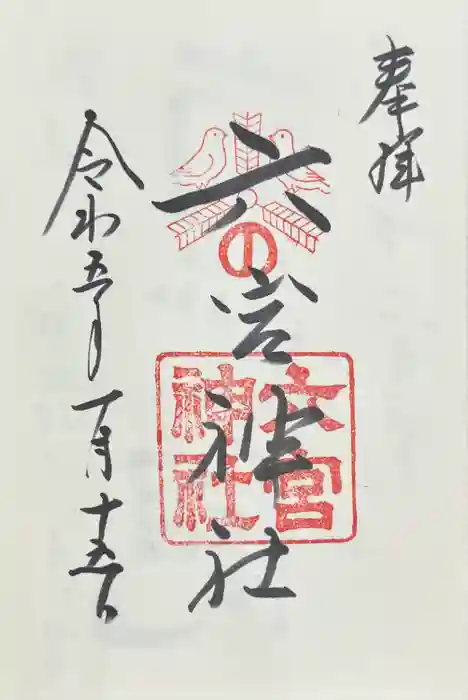 奉拝
六宮神社
六宮
神社
令和五年一月十五日